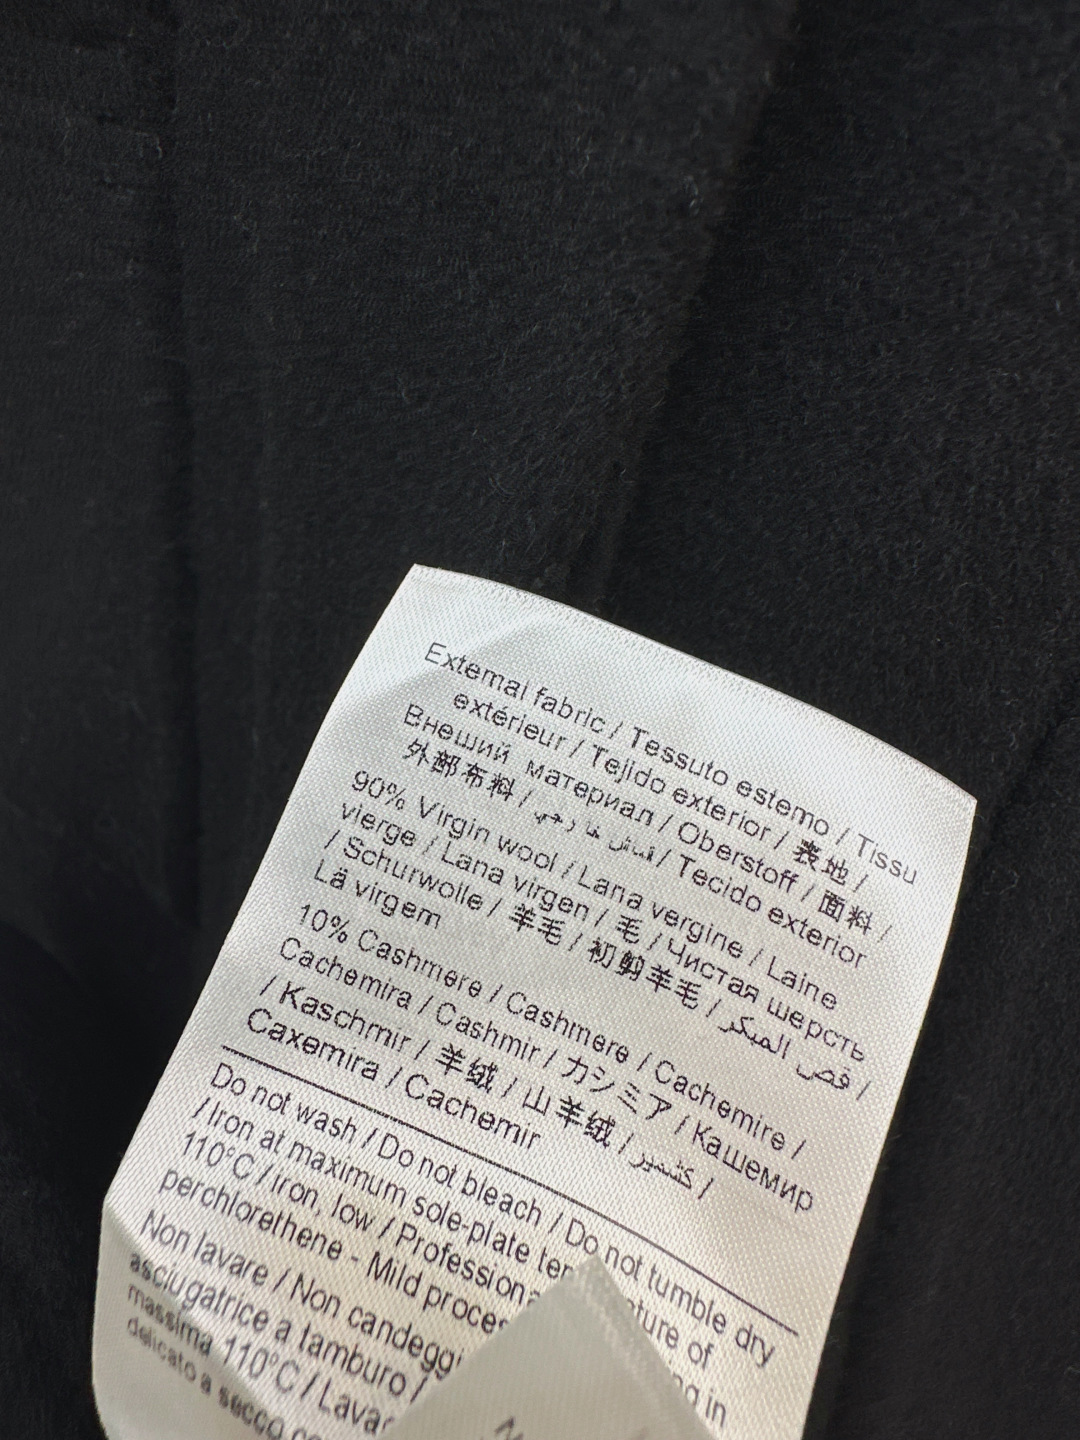 External fabric / Tessuto esterno / Tissu
extérieur / Tejido exterior / 表地 /
Внеший материал / Oberstoff / 面料 /
外部布料 / / Tecido exterior
90% Virgin wool / Lana vergine / Laine
vierge / Lana virgen / 毛 / Чистая шерсть
/ Schurwolle / 羊毛 / 初剪羊毛 / قص المبكر /
Lã virgem
10% Cashmere / Cashmere / Cachemire /
Cachemira / Cashmir / カシミア / Кашемир
/ Kaschmir / 羊绒 / 山羊绒 / كشمير /
Caxemira / Cachemir
Do not wash / Do not bleach / Do not tumble dry
/ Iron at maximum sole-plate of
110°C / iron, low / in
perchlorethene - Mild
Non lavare / Non
asciugatrice a tamburo /
massima 110°C /
delicato a secco